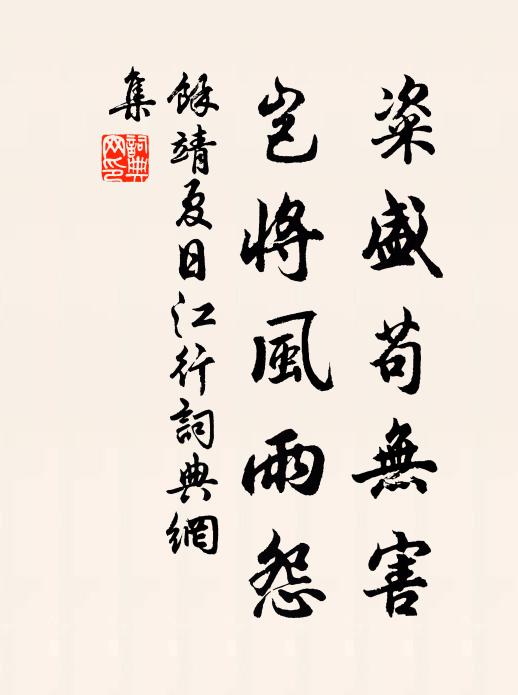 粢盛苟無害
豈將風雨怨
餘靖夏日江行詞典網
集
詞典
网印